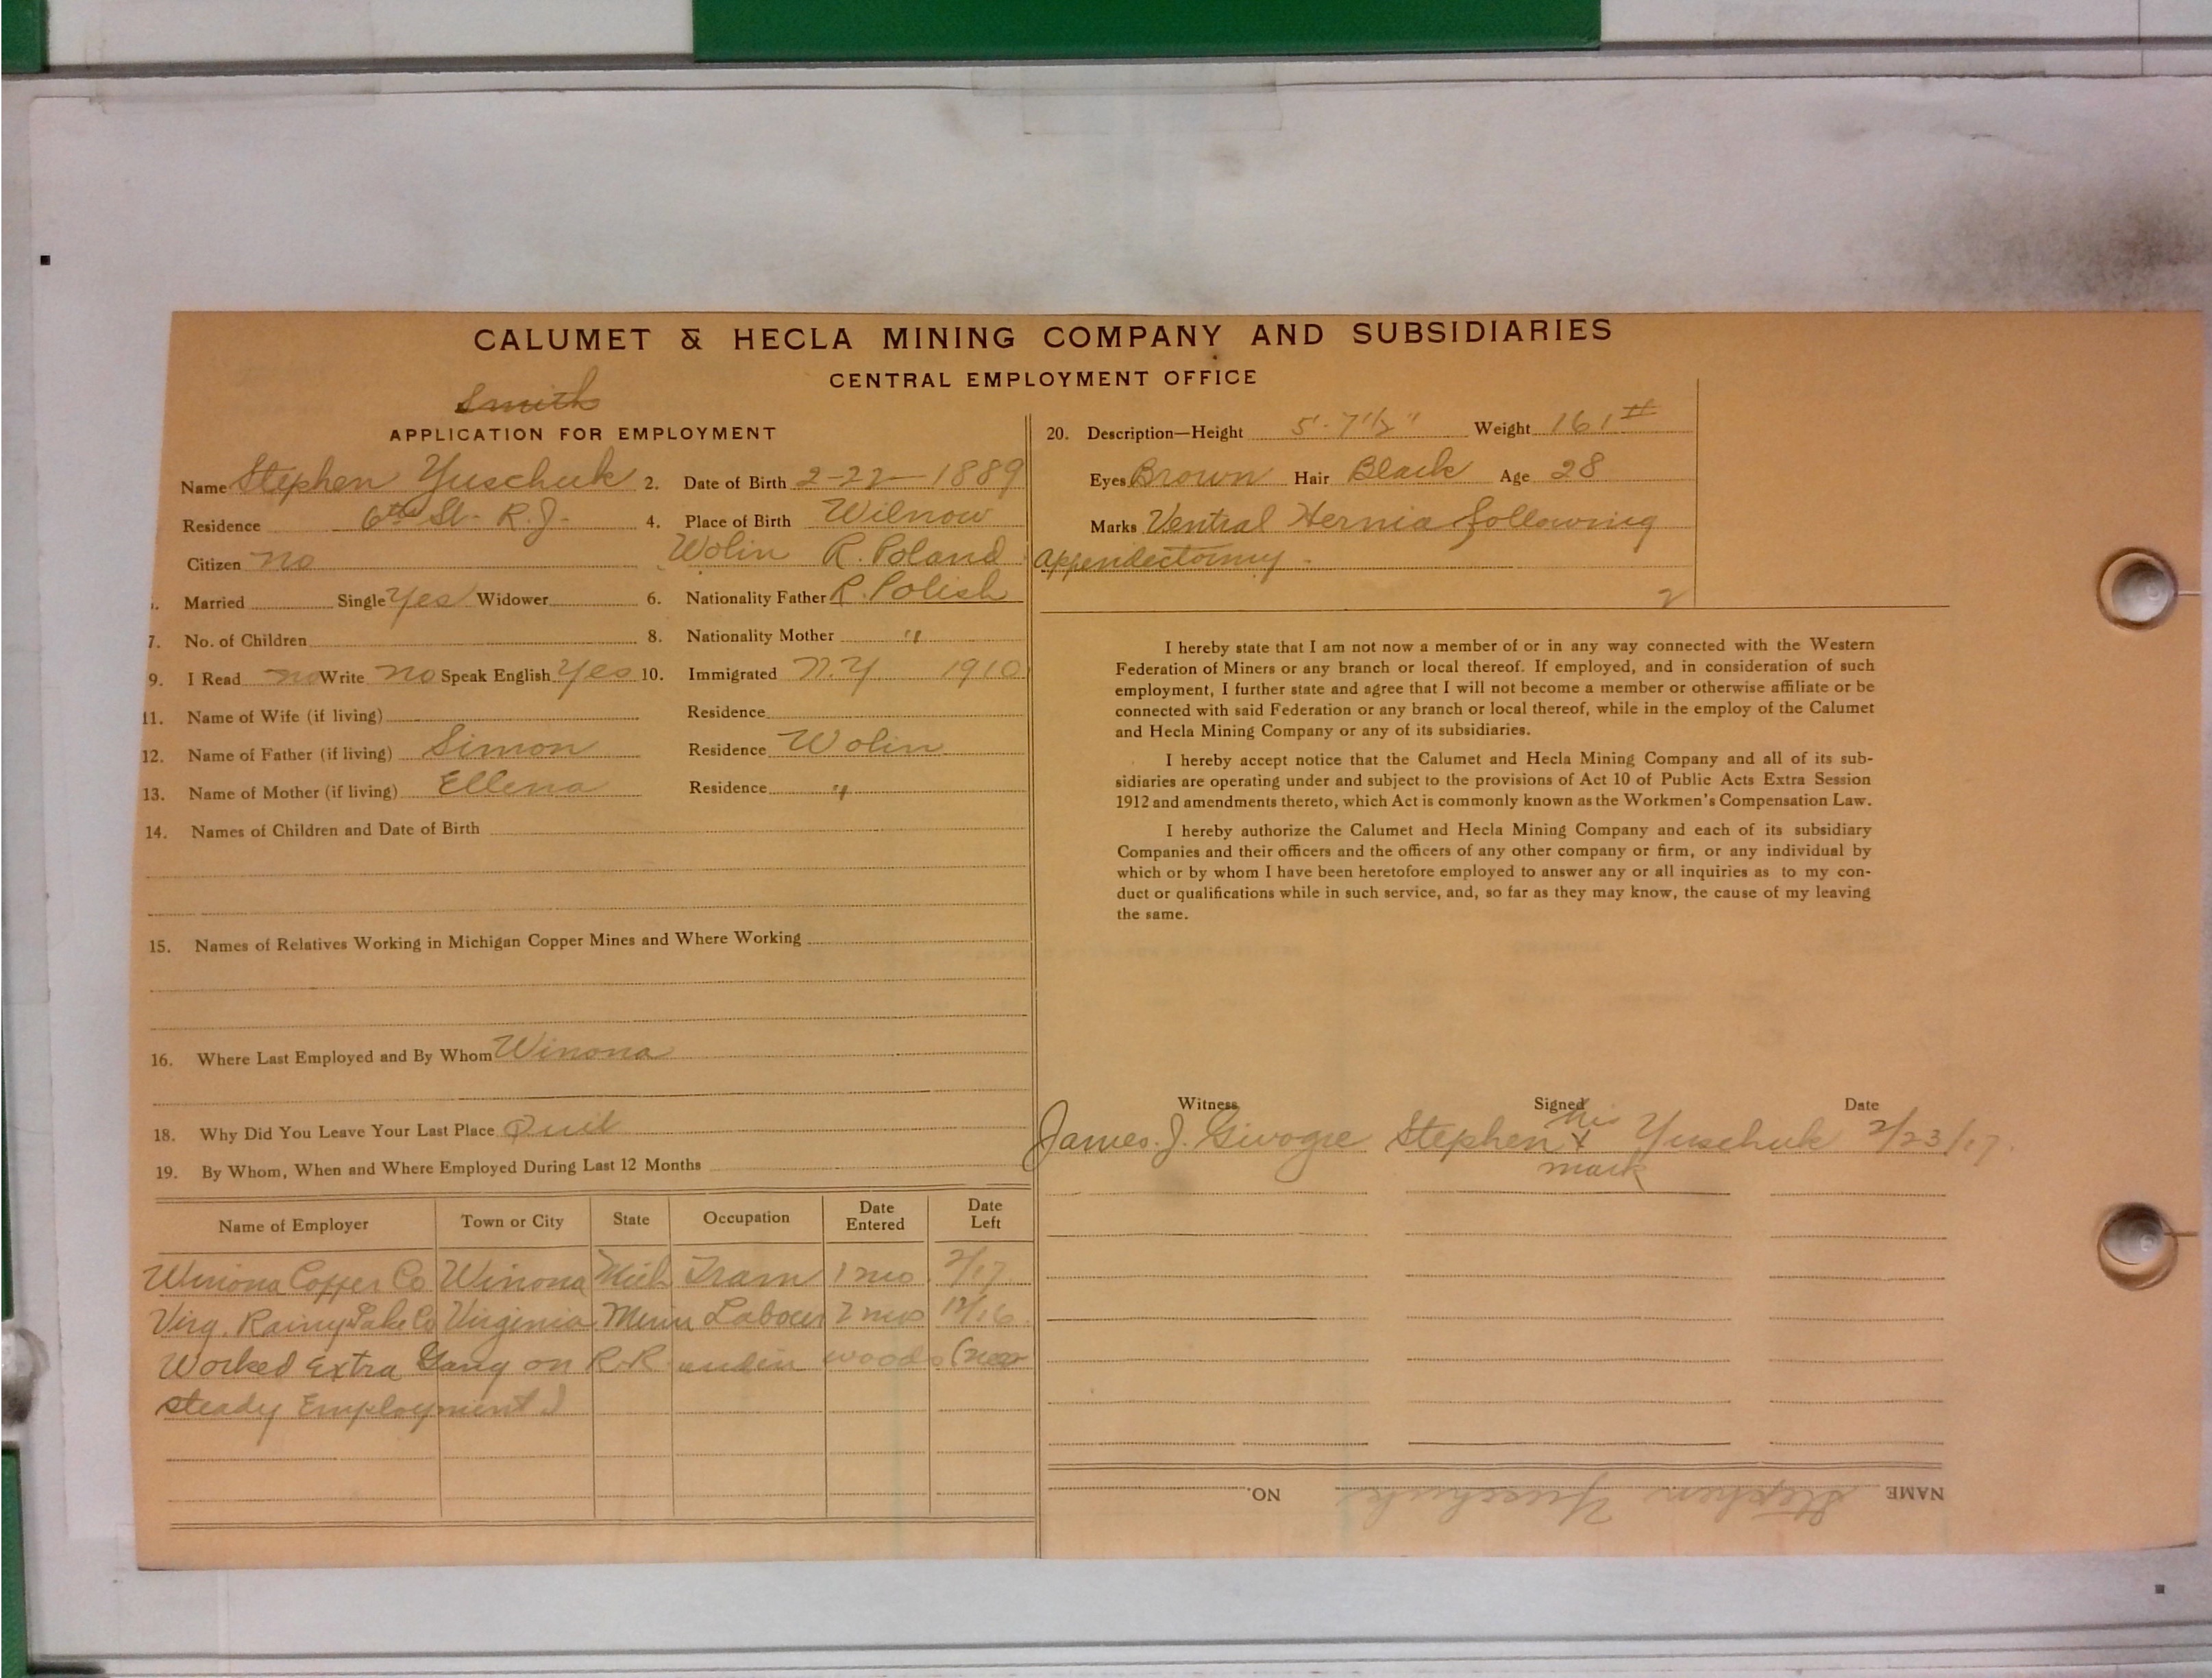 CALUMET & HECLA MINING COMPANY AND SUBSIDIARIES
CENTRAL EMPLOYMENT OFFICE
Smith
APPLICATION FOR EMPLOYMENT
Name Stephen Yuschuk 2. Date of Birth 2-22-1889
Residence 6th St. R.J. 4. Place of Birth Wilnow
Citizen no Wolin R. Poland
Married Single Yes Widower 6. Nationality Father R. Polish
7. No. of Children 8. Nationality Mother "
9. I Read no Write no Speak English Yes 10. Immigrated N.Y. 1910
11. Name of Wife (if living) Residence
12. Name of Father (if living) Simon Residence Wolin
13. Name of Mother (if living) Ellena Residence "
14. Names of Children and Date of Birth
15. Names of Relatives Working in Michigan Copper Mines and Where Working
16. Where Last Employed and By Whom Winona
18. Why Did You Leave Your Last Place Quit
19. By Whom, When and Where Employed During Last 12 Months
Name of Employer Town or City State Occupation Date Entered Date Left
Winona Copper Co Winona Mich Tram 1 mo 2/17
Virg. Rainy Lake Co Virginia Minn Labour 2 mos 12/16
Worked Extra Gang on R.R. woods (no
steady Employment)
20. Description—Height 5' 7 1/2" Weight 161#
Eyes Brown Hair Black Age 28
Marks Ventral Hernia following
appendectomy.
2
I hereby state that I am not now a member of or in any way connected with the Western
Federation of Miners or any branch or local thereof. If employed, and in consideration of such
employment, I further state and agree that I will not become a member or otherwise affiliate or be
connected with said Federation or any branch or local thereof, while in the employ of the Calumet
and Hecla Mining Company or any of its subsidiaries.
I hereby accept notice that the Calumet and Hecla Mining Company and all of its sub-
sidiaries are operating under and subject to the provisions of Act 10 of Public Acts Extra Session
1912 and amendments thereto, which Act is commonly known as the Workmen's Compensation Law.
I hereby authorize the Calumet and Hecla Mining Company and each of its subsidiary
Companies and their officers and the officers of any other company or firm, or any individual by
which or by whom I have been heretofore employed to answer any or all inquiries as to my con-
duct or qualifications while in such service, and, so far as they may know, the cause of my leaving
the same.
Witness Signed Date
his
James. J. Stephen x Yuschuk 2/23/17.
mark
NAME Stephen Yuschuk NO.